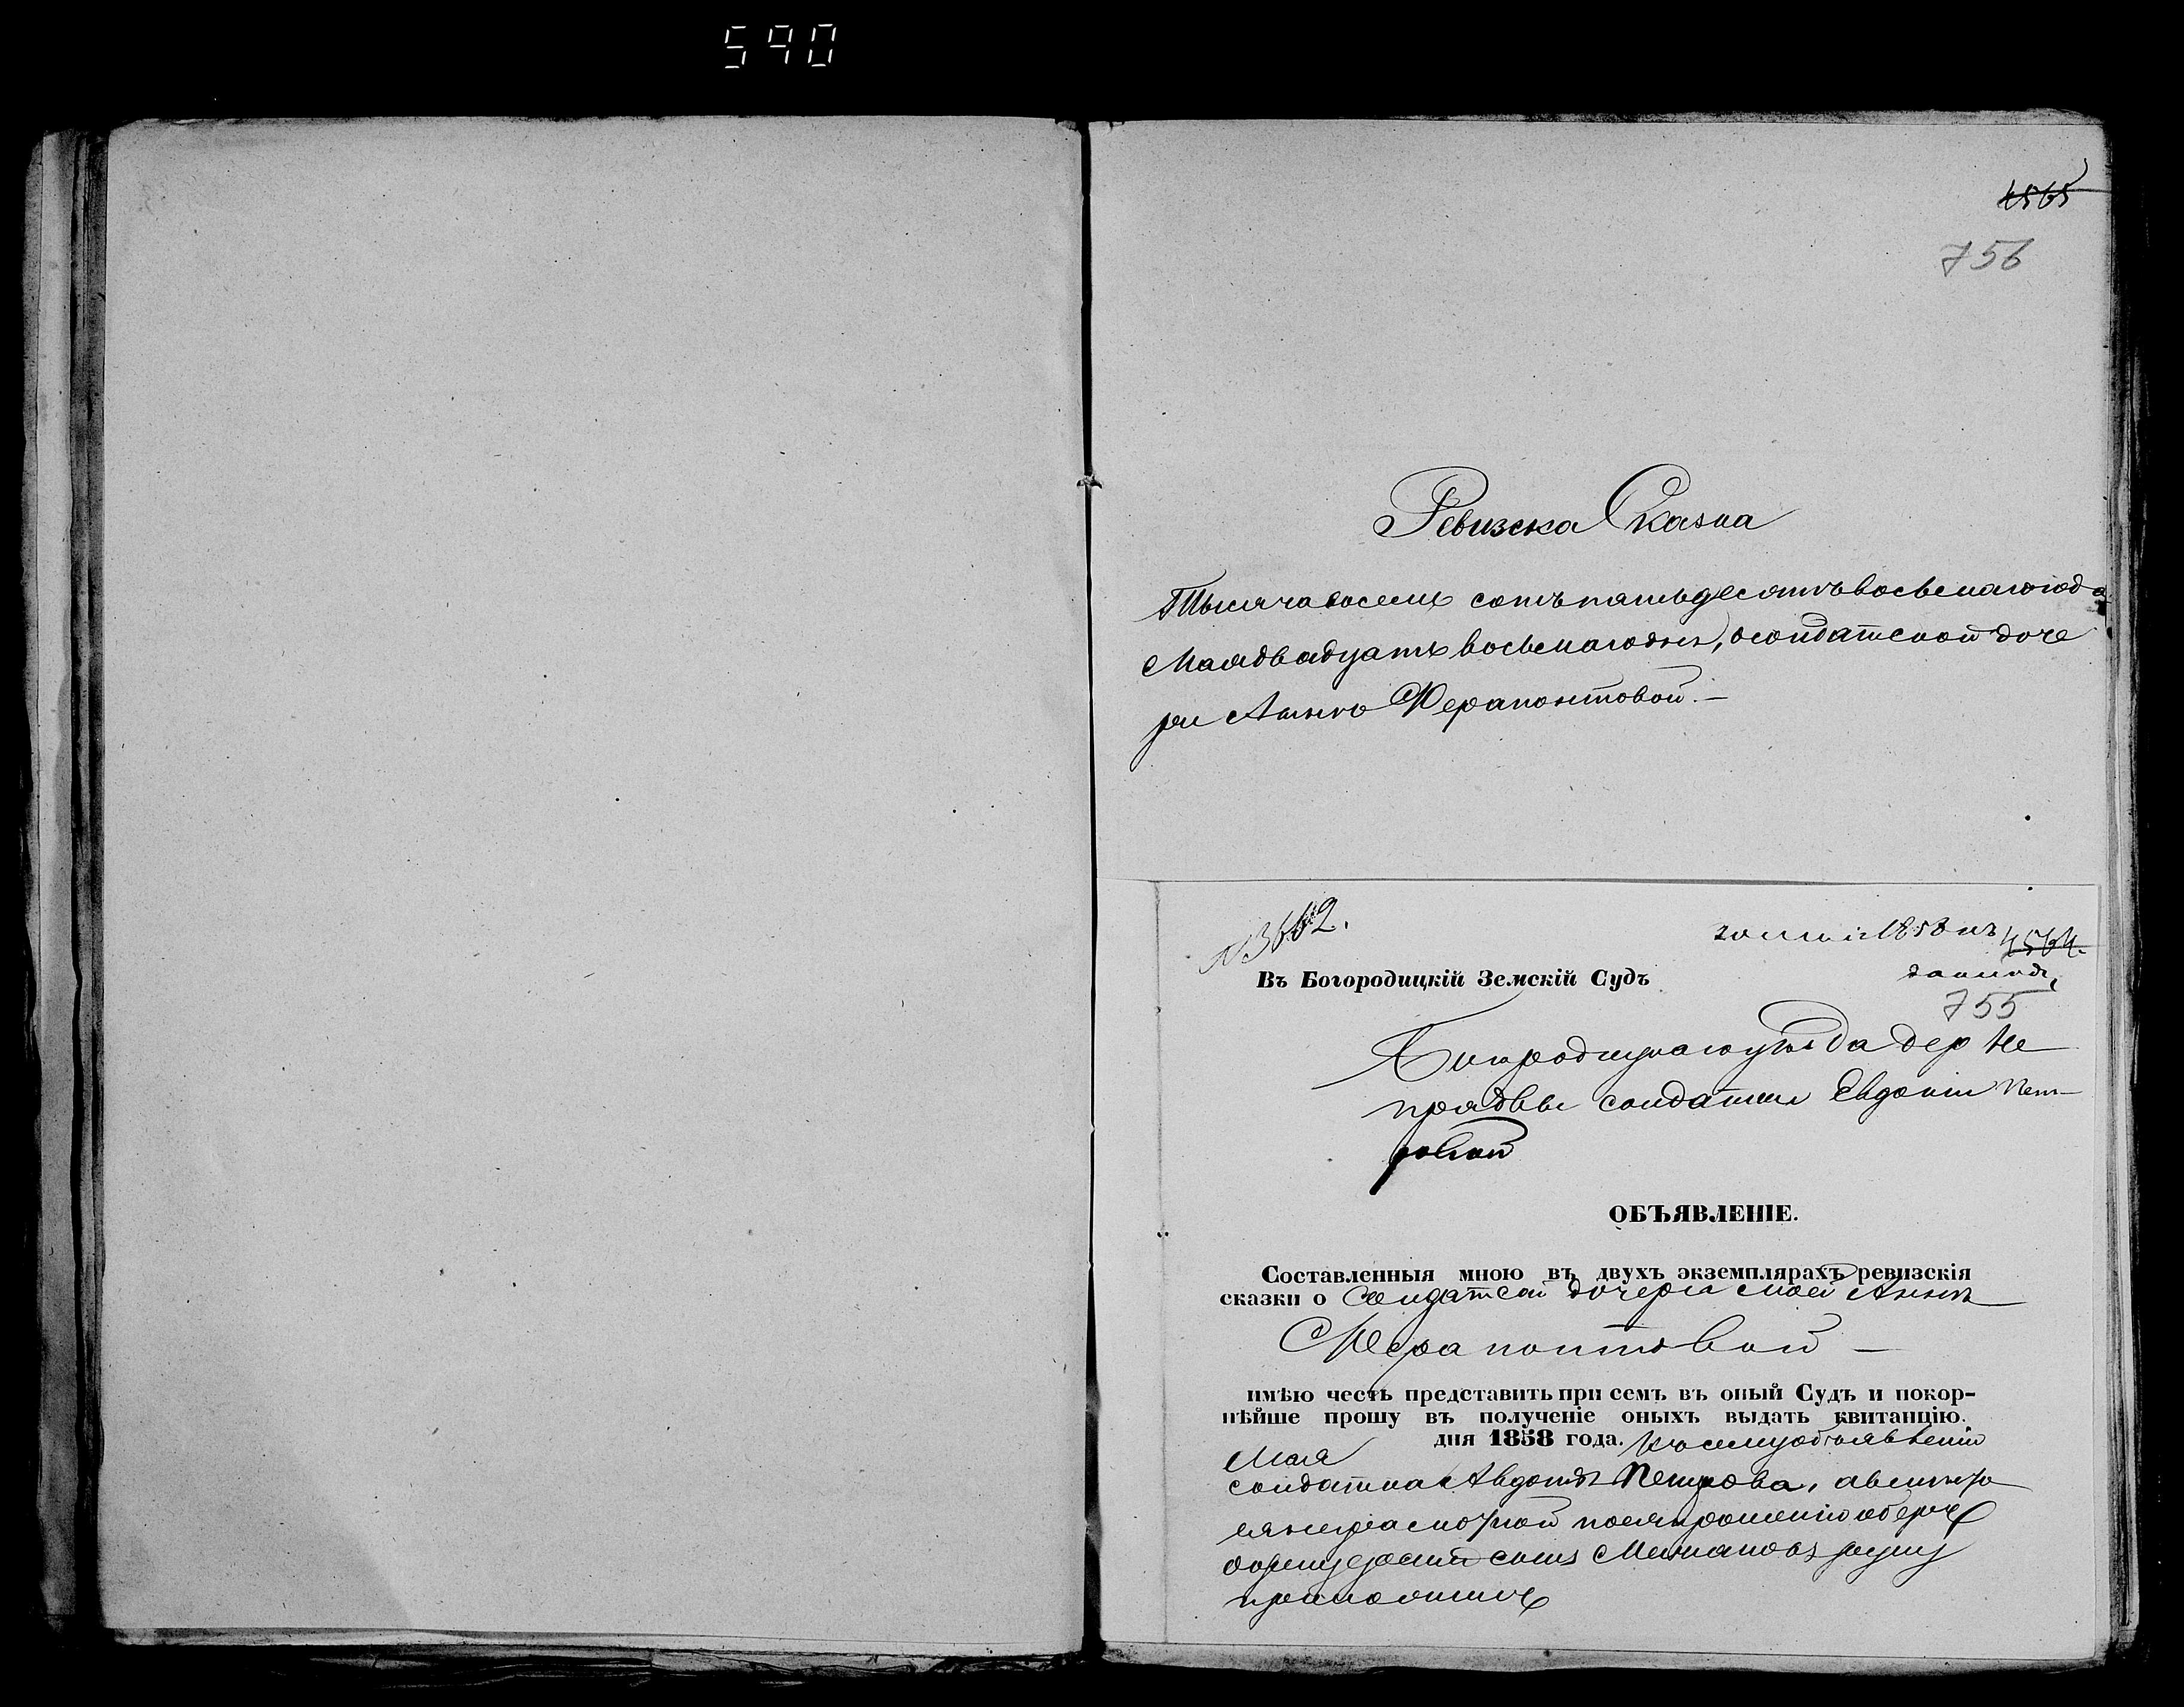 590
4565
756
Ревизска Сказка
Тысяча восемь сотъ пятьдесятъ восьмаго года
Мая двадцать восьмаго дня, о солдатской доче
ри Анне Ферапонтовой. —
№ 3662.
1858
4564.
Въ Богородицкій Земскій Судъ
755
Богородицкаго уѣзда дер Не
прядвы солдатки Евдокіи Пет-
ровой
ОБЪЯВЛЕНІЕ.
Составленныя мною въ двухъ экземплярахъ ревизскія
сказки о Солдатской дочери моей Аннѣ
Ферапонтовой —
имѣю честь представить при семъ въ оный Судъ и покор-
нѣйше прошу въ полученіе оныхъ выдать квитанцію.
дня 1858 года. Къ сему объявленію
Мая
солдатка Авдотья Петрова, а вместо
ея неграмотной по ея прошенію
сынъ руку
приложилъ